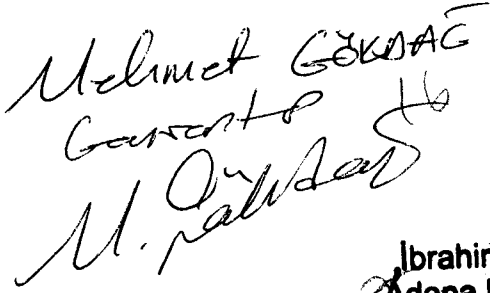 Mehmet GÖKDAĞ
Gaziantep
M. Gökdağ
İbrahim
Adana